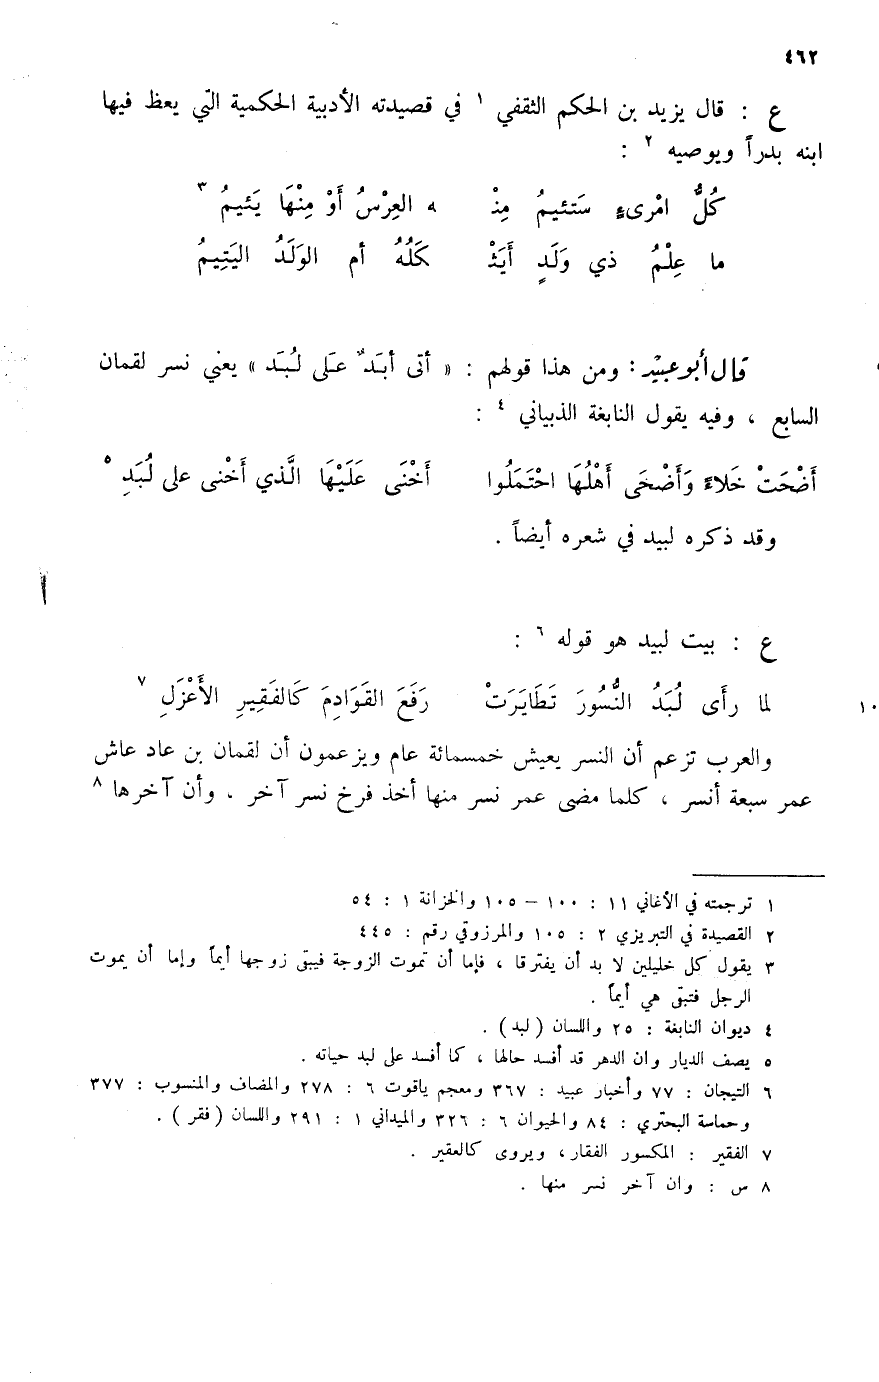 ٤٦٢
ع : قال يزيد بن الحكم الثقفي ١ في قصيدته الأدبية الحكمية التي يعظ فيها
ابنه بدراً ويوصيه ٢ :
كُلُّ امْرىءٍ سَتئيمُ مِنْـ ـه العِرْسُ أَوْ مِنْهَا يَئيمُ ٣
ما عِلْمُ ذي وَلَدٍ أَيَثْـ ـكَلُهُ أم الوَلَدُ اليَتِيمُ
قال أبو عبيد : ومن هذا قولهم : « أتى أبَدٌ عَلى لُبَد » يعني نسر لقمان
السابع ، وفيه يقول النابغة الذبياني ٤ :
أَضْحَتْ خَلاءً وَأَضْحَى أَهْلُهَا احْتَمَلُوا أَخْنَى عَلَيْهَا الَّذي أَخْنى على لُبَدِ ٥
وقد ذكره لبيد في شعره أيضاً .
أ
ع : بيت لبيد هو قوله ٦ :
لما رأى لُبَدُ النُّسُورَ تَطَايَرَتْ رَفَعَ القَوَادِمَ كَالفَقِيرِ الأَعْزَلِ ٧
١٠
والعرب تزعم أن النسر يعيش خمسمائة عام ويزعمون أن لقمان بن عاد عاش
عمر سبعة أنسر ، كلما مضى عمر نسر منها أخذ فرخ نسر آخر . وأن آخرها ٨
١ ترجمته في الأغاني ١١ : ١٠٠ – ١٠٥ والخزانة ١ : ٥٤
٢ القصيدة في التبريزي ٢ : ١٠٥ والمرزوقي رقم : ٤٤٥
٣ يقول كل خليلين لا بد أن يفترقا ، فإما أن تموت الزوجة فيبقى زوجها أيماً وإما أن يموت
الرجل فتبقى هي أيماً .
٤ ديوان النابغة : ٢٥ واللسان ( لبد ) .
٥ يصف الديار وان الدهر قد أفسد حالها ، كما أفسد على لبد حياته .
٦ التيجان : ٧٧ وأخبار عبيد : ٣٦٧ ومعجم ياقوت ٦ : ٢٧٨ والمضاف والمنسوب : ٣٧٧
وحماسة البحتري : ٨٤ والحيوان ٦ : ٣٢٦ والميداني ١ : ٢٩١ واللسان ( فقر ) .
٧ الفقير : المكسور الفقار ، ويروى كالعقير .
٨ س : وان آخر نسر منها .